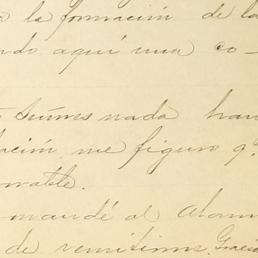 la formación de la
ndo aquí una co-
Señores nada han
ación me figuro q.
orable.
mandé al Alam
de remitirme. Gracia